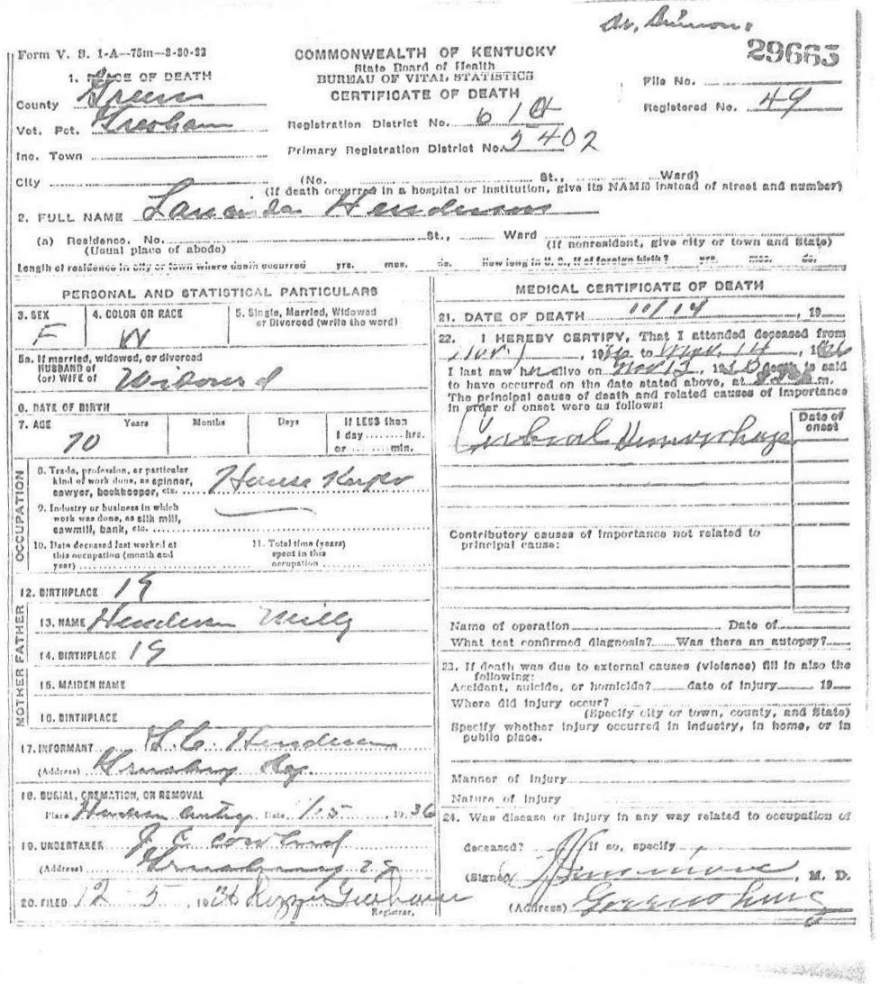 29663
Form V. S. 1-A—75m—3-30-33
COMMONWEALTH OF KENTUCKY
State Board of Health
BUREAU OF VITAL STATISTICS
CERTIFICATE OF DEATH
File No.
Registered No. 49
1. PLACE OF DEATH
County Green
Vot. Pct. Gresham
Registration District No. 610
Inc. Town
Primary Registration District No. 5402
City (No. St., Ward)
(If death occurred in a hospital or institution, give its NAME instead of street and number)
2. FULL NAME Henderson
(a) Residence. No. St., Ward
(Usual place of abode) (If nonresident, give city or town and State)
Length of residence in city or town where death occurred yrs. mos. ds. How long in U. S., if of foreign birth? yrs. mos. ds.
PERSONAL AND STATISTICAL PARTICULARS
3. SEX
F
4. COLOR OR RACE
W
5. Single, Married, Widowed
or Divorced (write the word)
5a. If married, widowed, or divorced
HUSBAND of
(or) WIFE of
6. DATE OF BIRTH
7. AGE Years Months Days If LESS than
1 day hrs.
or min.
70
OCCUPATION
8. Trade, profession, or particular
kind of work done, as spinner,
sawyer, bookkeeper, etc. House Keeper
9. Industry or business in which
work was done, as silk mill,
sawmill, bank, etc.
10. Date deceased last worked at
this occupation (month and
year)
11. Total time (years)
spent in this
occupation
12. BIRTHPLACE
MOTHER FATHER
13. NAME
14. BIRTHPLACE
15. MAIDEN NAME
16. BIRTHPLACE
17. INFORMANT Henderson
(Address) Greensburg Ky.
18. BURIAL, CREMATION, OR REMOVAL
Place Date 19 36
19. UNDERTAKER J. E.
(Address)
20. FILED 12 5 1936 Gresham
Registrar.
MEDICAL CERTIFICATE OF DEATH
21. DATE OF DEATH 11/14, 19
22. I HEREBY CERTIFY, That I attended deceased from
Nov. 1936 to Nov. 14, 1936
I last saw her alive on Nov 13, 19 death is said
to have occurred on the date stated above, at m.
The principal cause of death and related causes of importance
in order of onset were as follows:
Date of
onset
Cerebral Hemorrhage
Contributory causes of importance not related to
principal cause:
Name of operation Date of
What test confirmed diagnosis? Was there an autopsy?
23. If death was due to external causes (violence) fill in also the
following:
Accident, suicide, or homicide? date of injury 19
Where did injury occur?
(Specify city or town, county, and State)
Specify whether injury occurred in industry, in home, or in
public place.
Manner of injury
Nature of injury
24. Was disease or injury in any way related to occupation of
deceased? If so, specify
(Signed) M. D.
(Address) Greensburg